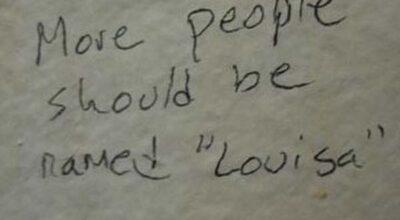 More people
should be
named "Louisa"